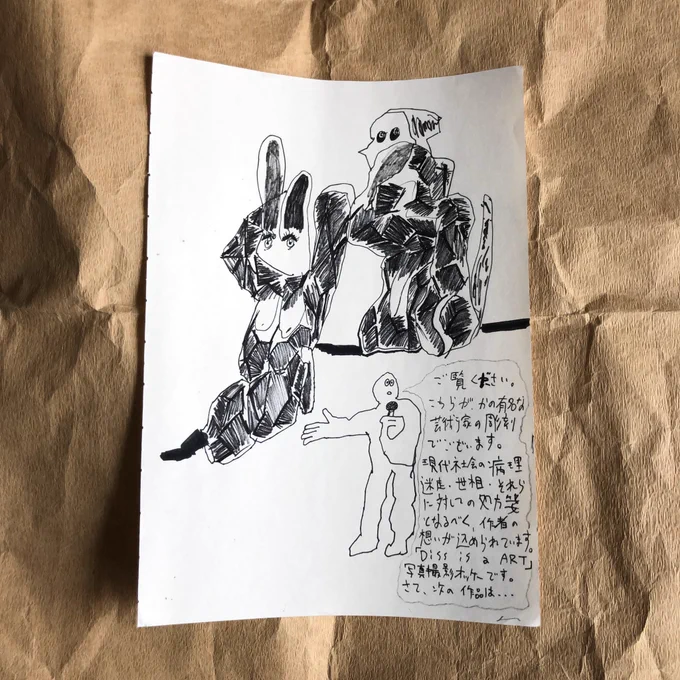 ご覧ください。
こちらが、かの有名な
芸術家の彫刻
でございます。
現代社会の病理
迷走・世相・それら
に対しての処方箋
となるべく、作者の
想いが込められています。
「Diss is a ART」
写真撮影オッケーです。
さて、次の作品は...